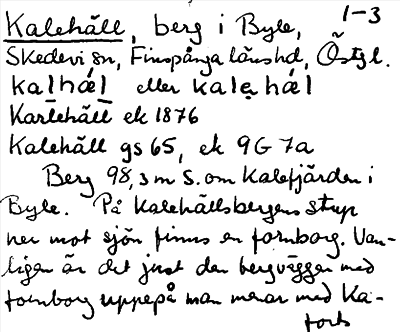 1-3
Kalehäll, berg i Byle,
Skedevi sn, Finspånga länshd, Östgl.
kalhǽl eller kalẹhǽl
Karlehäll ek 1876
Kalehäll gs 65, ek 9G 7a
Berg 98,3 m S. om Kalefjärden i
Byle. På Kalehällsbergens stup
ner mot sjön finns en fornborg. Van-
ligen är det just den bergväggen med
fornborg uppepå man menar med Ka-
forts